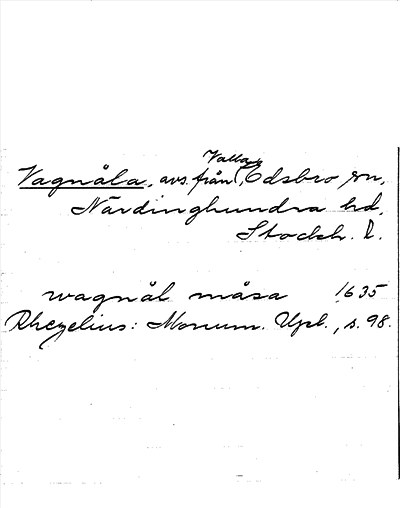 Valla,
Vagnåla, avs. från Edsbro sn,
Närdinghundra hd,
Stockh. l.
wagnål måsa 1635
Rhezelius: Monum. Upl., s. 98.